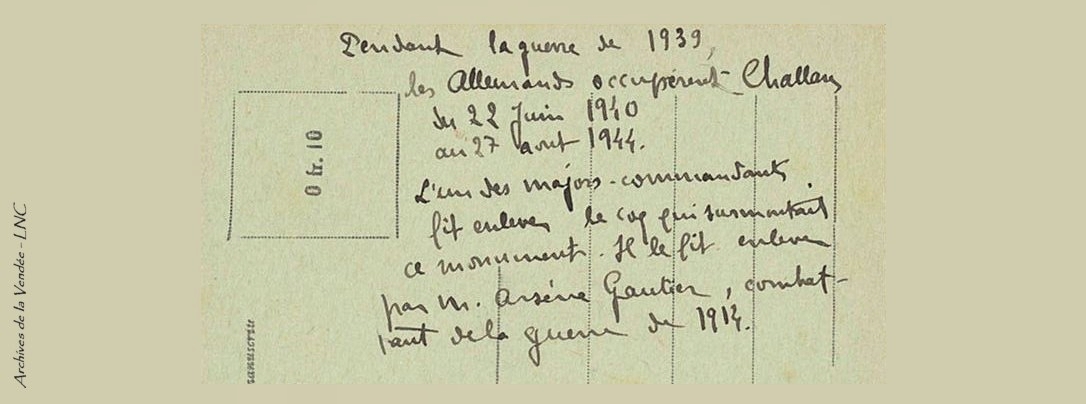 Pendant la guerre de 1939,
les Allemands occupèrent Challans
du 22 Juin 1940
au 27 août 1944.
L'un des majors-commandants
fit enlever le coq qui surmontait
ce monument. Il le fit enlever
par M. Arsène Gautier, combat-
tant de la guerre de 1914.
0 fr. 10
anuscrit
Archives de la Vendée - LNC